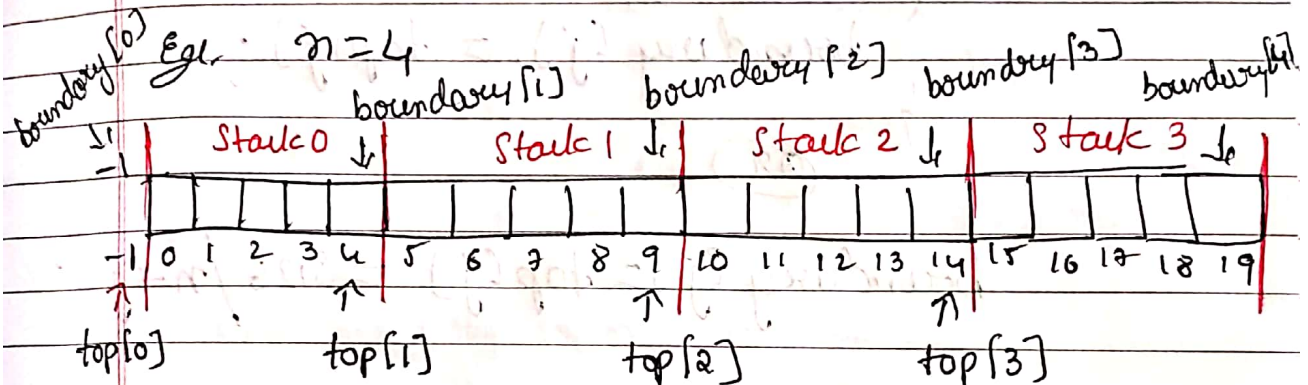 Eg1. n=4
boundary[0] boundary[1] boundary[2] boundry[3] boundary[4]
-1 Stack 0 Stack 1 Stack 2 Stack 3
-1 0 1 2 3 4 5 6 7 8 9 10 11 12 13 14 15 16 17 18 19
top[0] top[1] top[2] top[3]